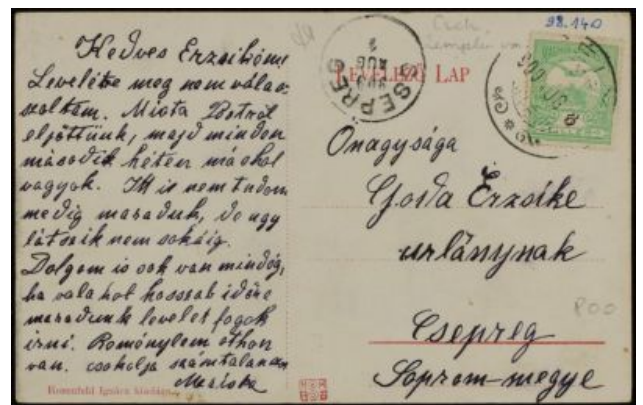 Kedves Erzsikém!
Levelére meg nem válas-
zoltam. Miota Pestről
eljöttünk, majd minden
második héten máshol
vagyok. Itt is nem tudom
medig maradunk, de ugy
látszik nem sokáig.
Dolgom is sok van mindég,
ha vala hol hosszab időre
maradunk levelet fogok
irni. Reménylem othon
van. csokolja számtalanszor
Mariska
Rosenfeld Ignácz kiadása
LEVELEZŐ LAP
CSEPREG
AUG
98.140
Önagysága
Goda Erzsike
urlánynak
Csepreg
Soprom-megye
800